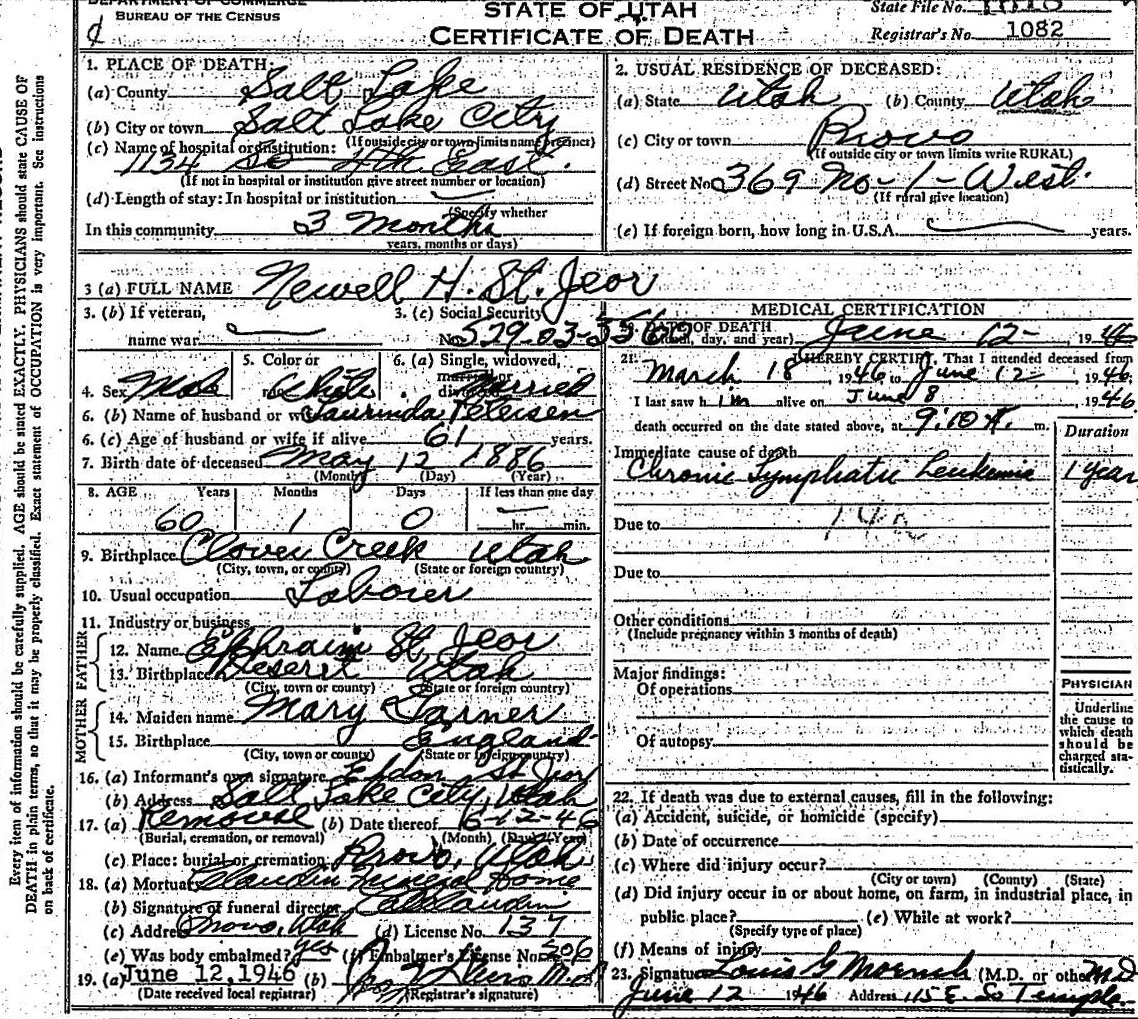 DEPARTMENT OF COMMERCE
BUREAU OF THE CENSUS
STATE OF UTAH
CERTIFICATE OF DEATH
State File No.
Registrar's No. 1082
Every item of information should be carefully supplied. AGE should be stated EXACTLY. PHYSICIANS should state CAUSE OF
DEATH in plain terms, so that it may be properly classified. Exact statement of OCCUPATION is very important. See instructions
on back of certificate.
1. PLACE OF DEATH:
(a) County Salt Lake
(b) City or town Salt Lake City
(If outside city or town limits name precinct)
(c) Name of hospital or institution:
1134 So 4th East.
(If not in hospital or institution give street number or location)
(d) Length of stay: In hospital or institution
(Specify whether
In this community 3 Months
years, months or days)
2. USUAL RESIDENCE OF DECEASED:
(a) State Utah (b) County Utah
(c) City or town Provo
(If outside city or town limits write RURAL)
(d) Street No. 369 No-1-West.
(If rural give location)
(e) If foreign born, how long in U.S.A. years.
3 (a) FULL NAME Newell H. St. Jeor
3. (b) If veteran,
name war
3. (c) Social Security
No. 529-03-
4. Sex Male
5. Color or
White
6. (a) Single, widowed,
married or
divorced Married
6. (b) Name of husband or wife Petersen
6. (c) Age of husband or wife if alive 61 years.
7. Birth date of deceased May 12 1886
(Month) (Day) (Year)
8. AGE Years Months Days If less than one day
60 1 0 hr. min.
9. Birthplace Clover Creek Utah
(City, town, or county) (State or foreign country)
10. Usual occupation Laborer
11. Industry or business
FATHER
12. Name Ephraim St. Jeor
13. Birthplace Deseret Utah
(City, town or county) (State or foreign country)
MOTHER
14. Maiden name Mary
15. Birthplace England
(City, town or county) (State or foreign country)
16. (a) Informant's own signature St Jeor
(b) Address Salt Lake City, Utah
17. (a) Removal (b) Date thereof 6-12-46
(Burial, cremation, or removal) (Month) (Day) (Year)
(c) Place: burial or cremation Provo, Utah
18. (a) Mortuary Claudin Funeral Home
(b) Signature of funeral director
(c) Address Provo, Utah (d) License No. 137
(e) Was body embalmed? yes (f) Embalmer's License No. 206
19. (a) June 12, 1946 (b)
(Date received local registrar) (Registrar's signature)
MEDICAL CERTIFICATION
20. DATE OF DEATH
(Month, day, and year) June 12- 1946
21. I HEREBY CERTIFY, That I attended deceased from
March 18 1946 to June 12, 1946.
I last saw him alive on June 8 1946
death occurred on the date stated above, at 9:10 A. m.
Duration
Immediate cause of death
Chronic Lymphatic Leukemia 1 Year
Due to
Due to
Other conditions
(Include pregnancy within 3 months of death)
Major findings:
Of operations
Of autopsy
PHYSICIAN
Underline
the cause to
which death
should be
charged sta-
tistically.
22. If death was due to external causes, fill in the following:
(a) Accident, suicide, or homicide (specify)
(b) Date of occurrence
(c) Where did injury occur?
(City or town) (County) (State)
(d) Did injury occur in or about home, on farm, in industrial place, in
public place? (e) While at work?
(Specify type of place)
(f) Means of injury
23. Signature Louis G Moench (M.D. or other) M.D
June 12 1946 Address 115 E. So Temple